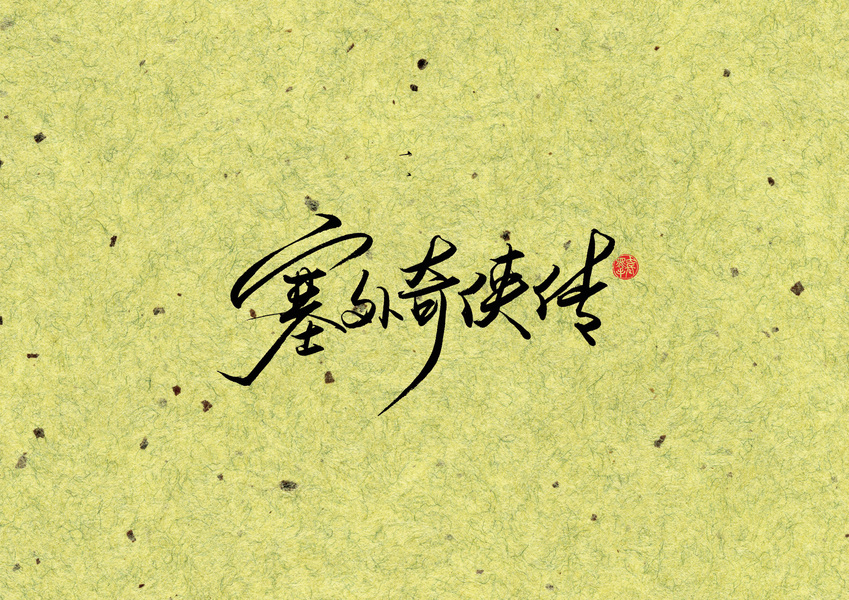 塞外奇侠传